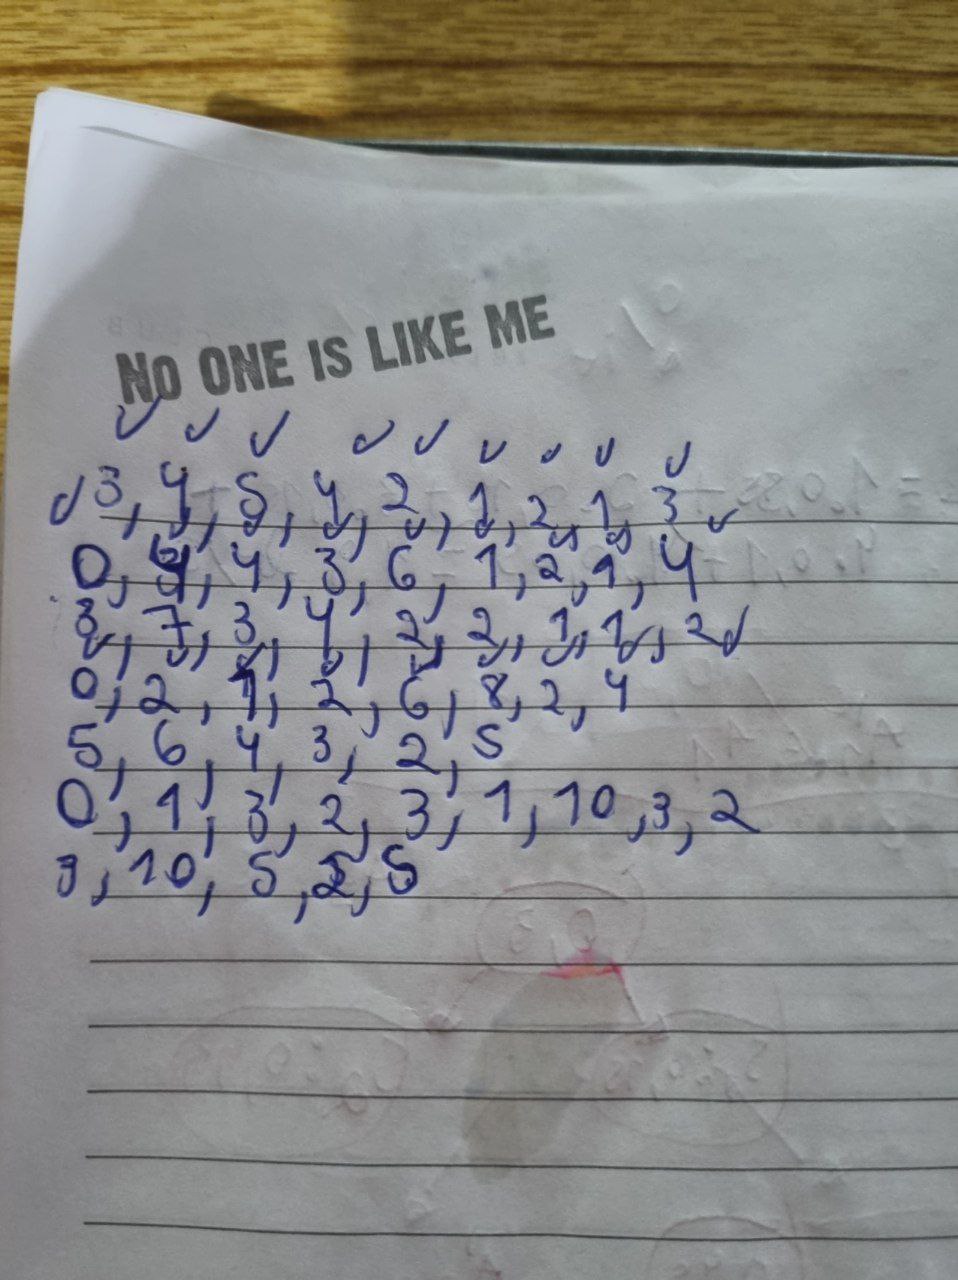 NO ONE IS LIKE ME
3, 4, 5, 4, 2, 1, 2, 1, 3
0, 4, 4, 3, 6, 1, 2, 1, 4
3, 7, 3, 4, 2, 2, 1, 1, 2
0, 2, 1, 2, 6, 8, 2, 4
5, 6, 4, 3, 2, 5
0, 1, 3, 2, 3, 1, 10, 3, 2
3, 10, 5, 2, 5